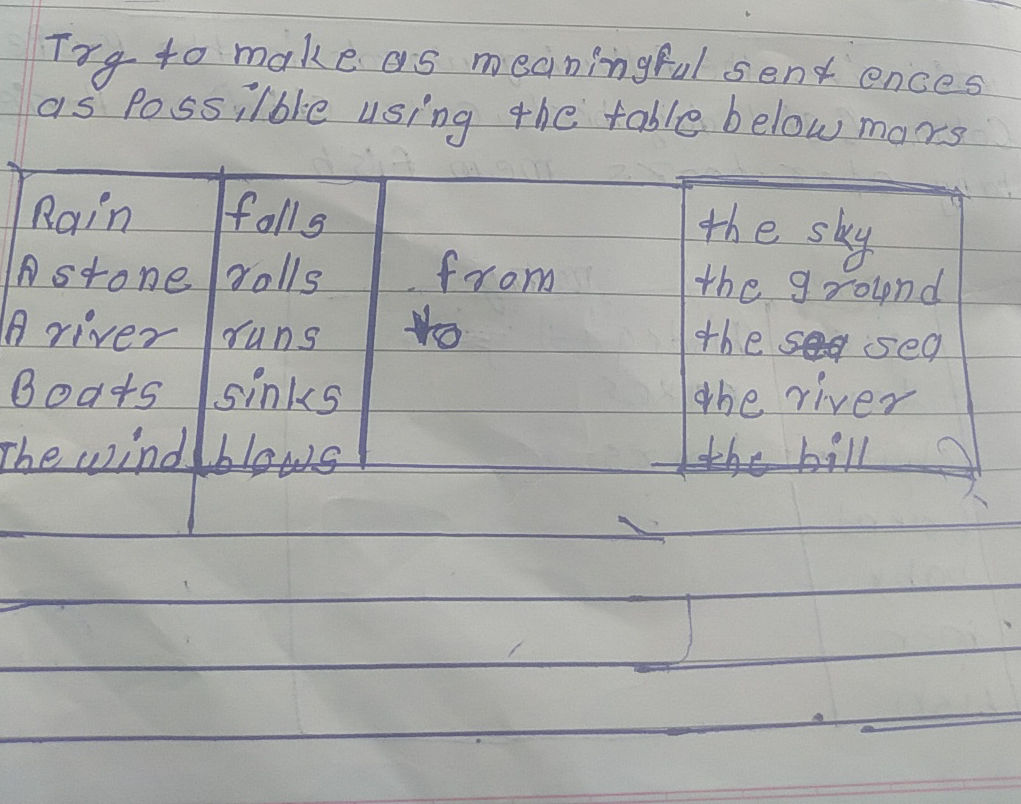 Try to make as meaningful sent ences
as Possilble using the table below mars
Rain falls the sky
A stone rolls from the ground
A river runs to the sea
Boats sinks the river
The wind blows the hill